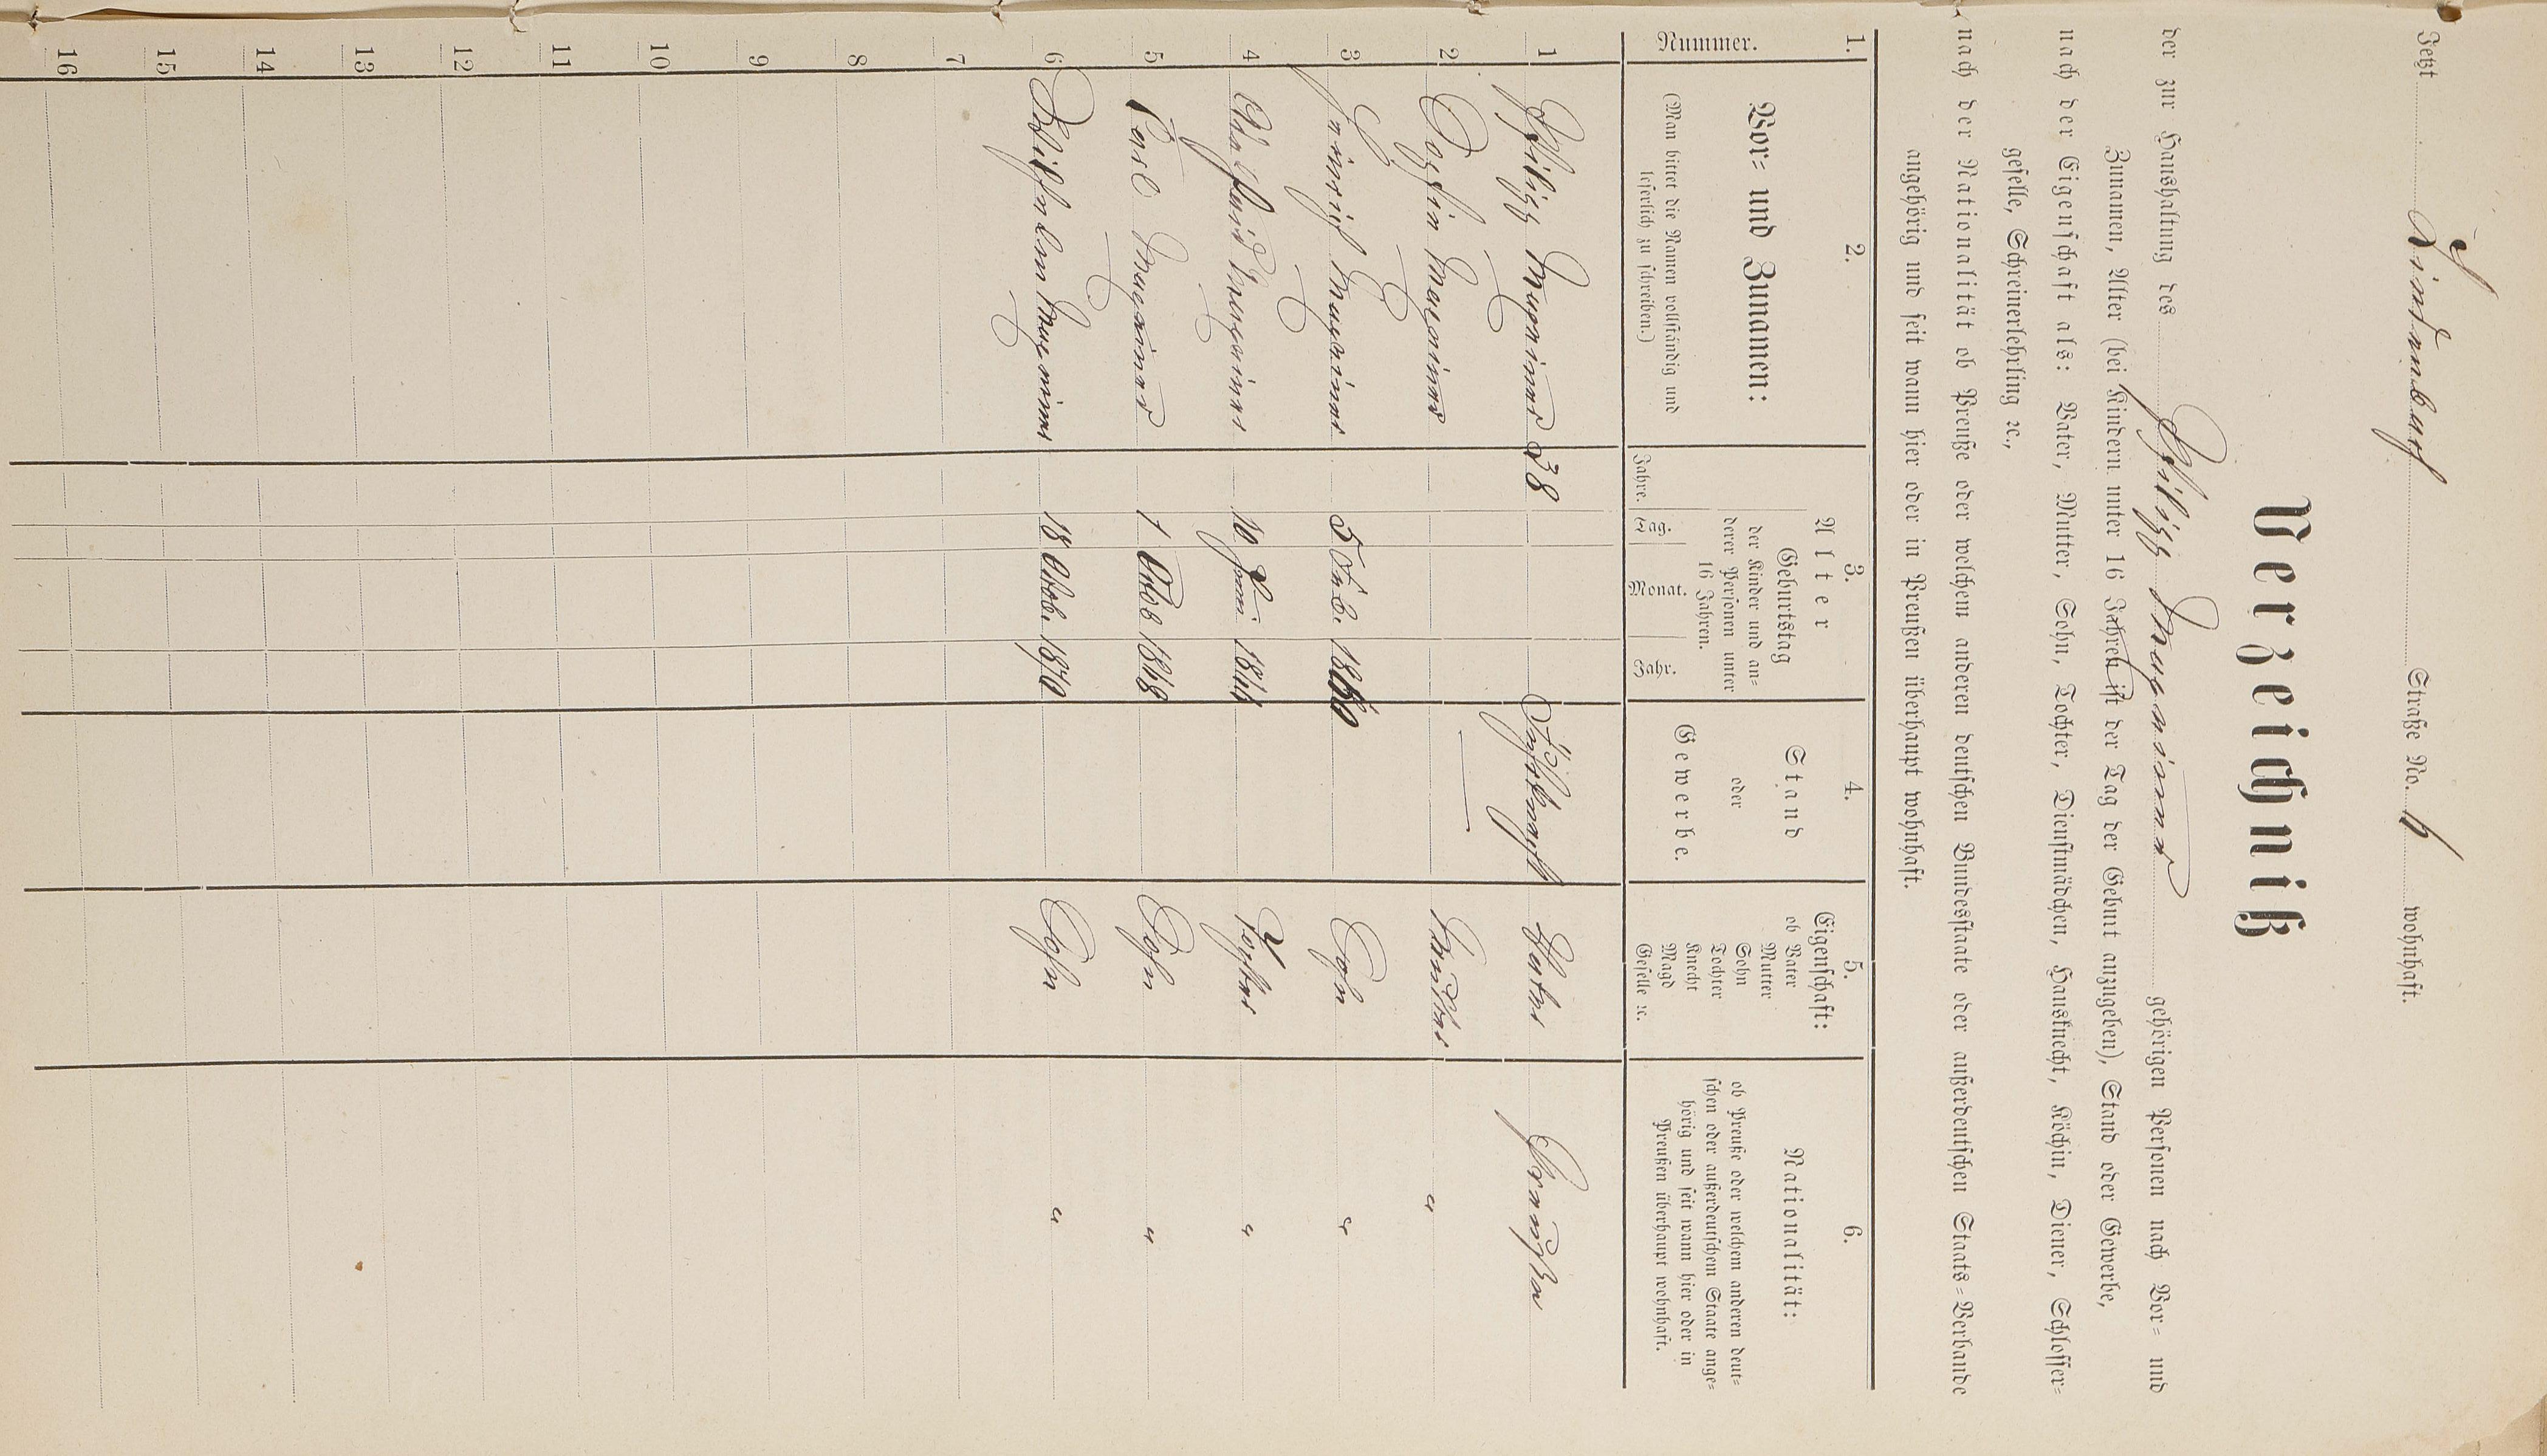 Jetzt Lindenbach Straße No. 6 wohnhaft.
Verzeichniß
der zur Haushaltung des Philipp gehörigen Personen nach Vor- und
Zunamen, Alter (bei Kindern unter 16 Jahren ist der Tag der Geburt anzugeben), Stand oder Gewerbe,
nach der Eigenschaft als: Vater, Mutter, Sohn, Tochter, Dienstmädchen, Hausknecht, Köchin, Diener, Schlosser-
geselle, Schreinerlehrling ꝛc.,
nach der Nationalität ob Preuße oder welchem anderen deutschen Bundesstaate oder außerdeutschen Staats-Verbande
angehörig und seit wann hier oder in Preußen überhaupt wohnhaft.
1. 2. 3. 4. 5. 6.
Nummer.
Vor- und Zunamen:
(Man bittet die Namen vollständig und
leserlich zu schreiben.)
Alter
Geburtstag
der Kinder und an-
derer Personen unter
16 Jahren.
Jahre. Tag. Monat. Jahr.
Stand
oder
Gewerbe.
Eigenschaft:
ob Vater
Mutter
Sohn
Tochter
Knecht
Magd
Geselle ꝛc.
Nationalität:
ob Preuße oder welchem anderen deut-
schen oder außerdeutschem Staate ange-
hörig und seit wann hier oder in
Preußen überhaupt wohnhaft.
1 Philipp 38 Vater Preußen
2 Sophie — Mutter "
3 Heinrich 5 Feb. 1860 Sohn "
4 10 Juni Tochter "
5 Carl 1 Octob 1868 Sohn "
6 Wilhelm 18 Octob. 1870 Sohn "
7
8
9
10
11
12
13
14
15
16